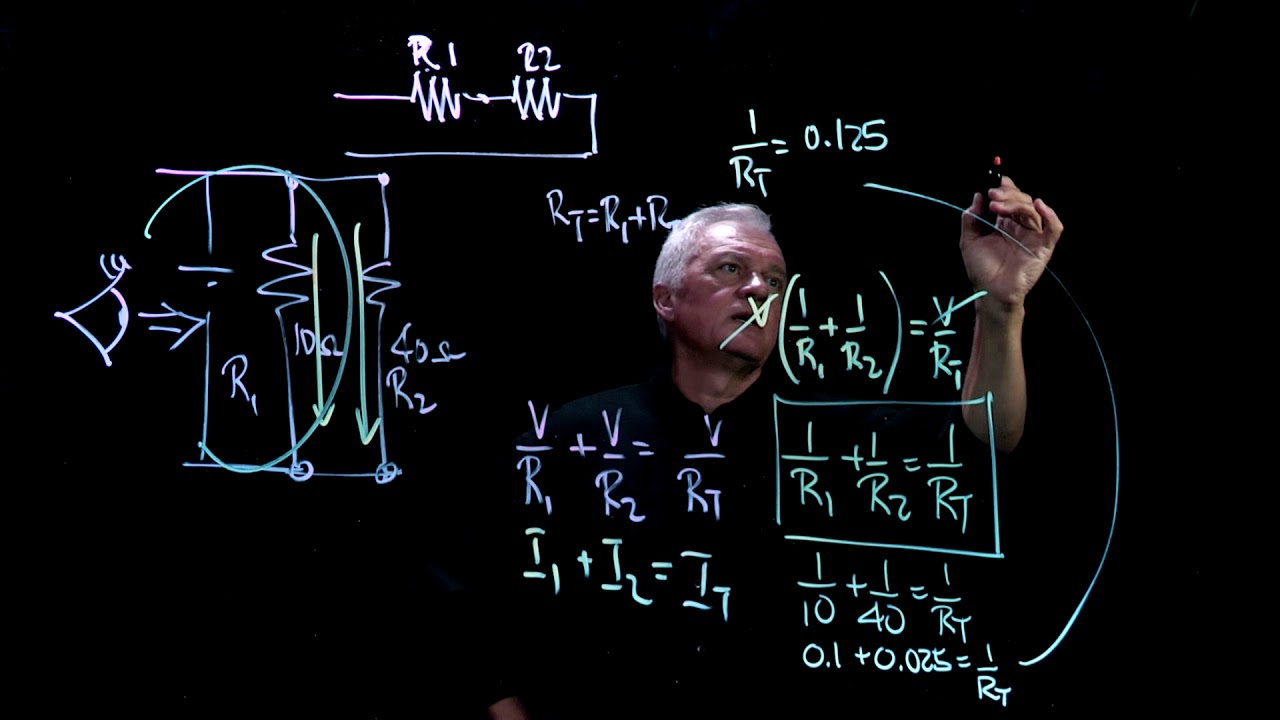 R1 R2
1/R_T = 0.125
R_T = R_1 + R
V (1/R_1 + 1/R_2) = V/R_T
10Ω 40Ω
R_1 R_2
V/R_1 + V/R_2 = V/R_T
1/R_1 + 1/R_2 = 1/R_T
I_1 + I_2 = I_T
1/10 + 1/40 = 1/R_T
0.1 + 0.025 = 1/R_T